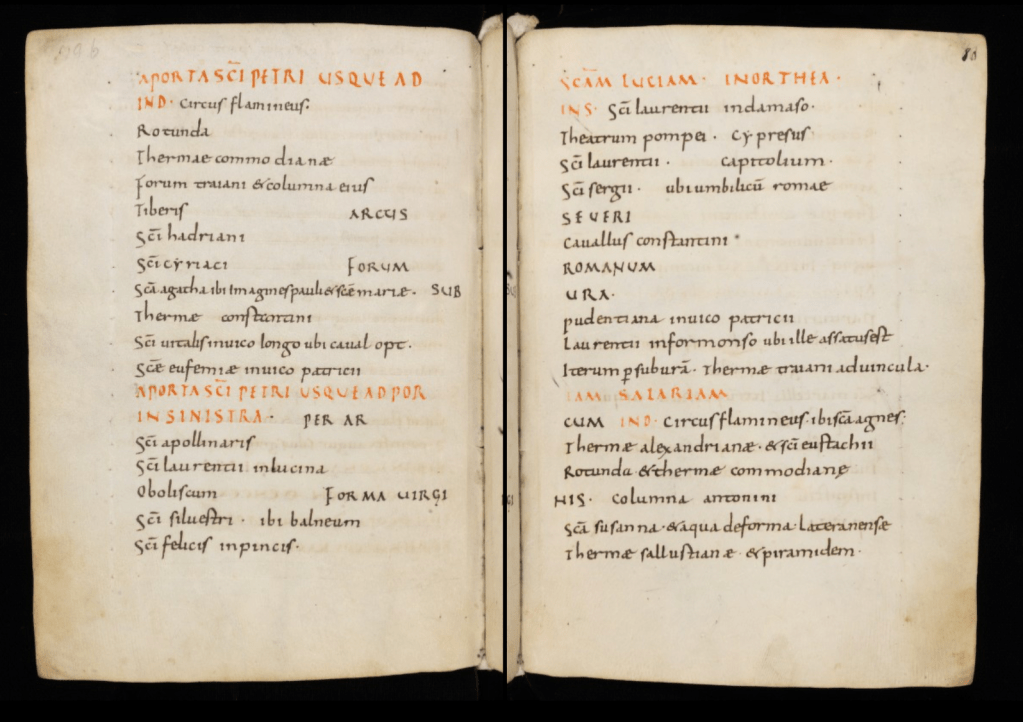 APORTA SC̄I PETRI USQUE AD
IND· Circus flamineus.
Rotunda
Thermae commodianæ
Forum traiani & columna eius
Tiberis ARCUS
Sc̄i hadriani
Sc̄i cyriaci FORUM
Sc̄a agatha ibi imagines pauli & sc̄e mariæ. SUB
Thermæ constantini
Sc̄i uitalis inuico longo ubi caual opt.
Sc̄e eufemiæ inuico patricii
APORTA SC̄I PETRI USQUE AD POR
IN SINISTRA· PER AR
Sc̄i apollinaris
Sc̄i laurentii inlucina
Oboliscum FORMA UIRGI
Sc̄i siluestri· ibi balneum
Sc̄i felicis inpincis·
80
SC̄AM LUCIAM· INORTHEA·
INS· Sc̄i laurentii indamaso·
Theatrum pompei· Cypresus
Sc̄i laurentii· capitolium·
Sc̄i sergii· ubi umbilicū romae
SEUERI
Cauallus constantini
ROMANUM
URA·
pudentiana inuico patricii
Laurentii informonso ubi ille assatus est
Iterum p̱ suburā· Thermæ traiani aduincula·
TAM SALARIAM
CUM IND· Circus flamineus· ibi sc̄a agnes·
Thermæ alexandrianæ· & sc̄i eustachii
Rotunda & thermæ commodianę
NIS· Columna antonini
Sc̄a susanna· & aqua deforma Lateranense
Thermæ sallustianæ· & piramidem·